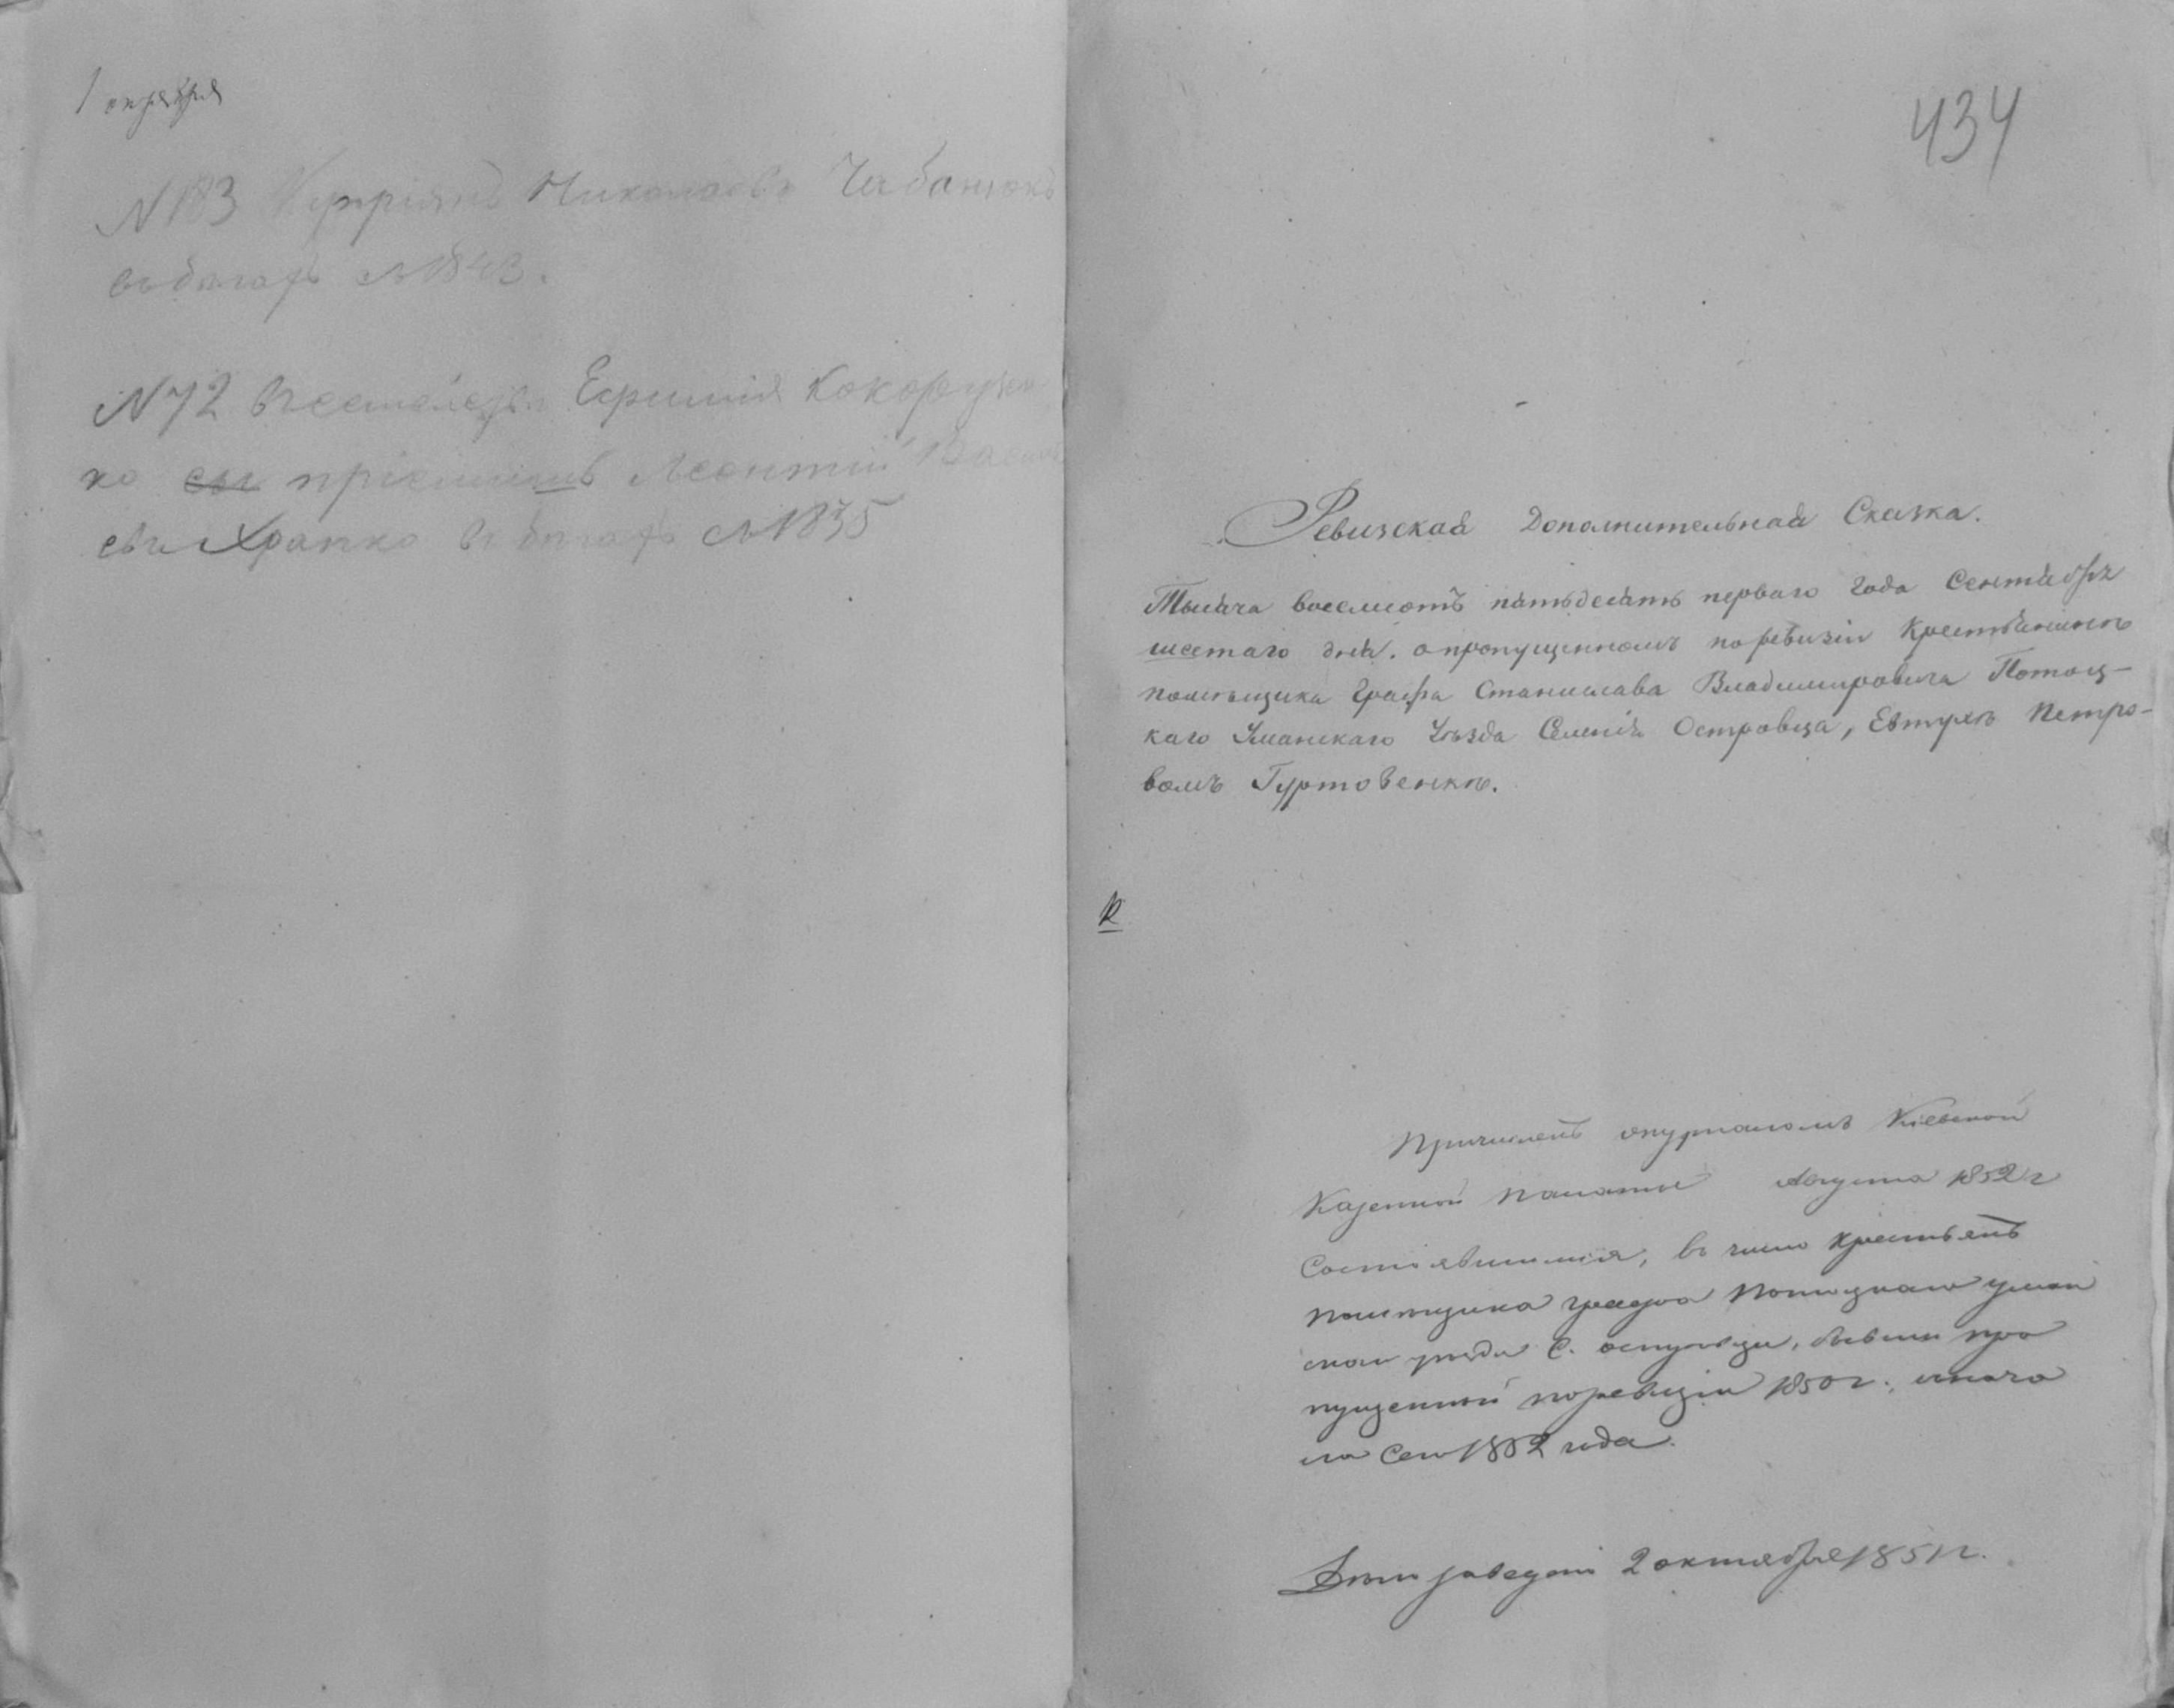 1 октября
N 183 Купріянъ Николаевъ Чабанюкъ
въ бѣгахъ съ 1842.
N 72 Ефимія Кокору
ко сы пріемышъ Леонтій
евъ Храпко въ бѣгахъ съ 1835
434
Ревизская Дополнительная Сказка.
Тысяча восемьсотъ пятьдесятъ перваго года Сентября
шестаго дня. о пропущенномъ по ревизіи Крестьянинѣ
помѣщика Графа Станислава Владимировича Потоц-
каго Уманскаго Уѣзда Селенія Островца, Евтухѣ Петро-
вомъ Гуртовенкѣ.
Причисленъ журналомъ Кіевской
Казенной Палаты Августа 1852 г
состоявшимся, въ число крестьянъ
помѣщика графа Потоцкаго уман
скаго уѣзда С. Островца, бывши про
пущенный по ревизіи 1850 г.,
на Сего 1852 года.
Дѣло заведено 2 октября 1851 г.